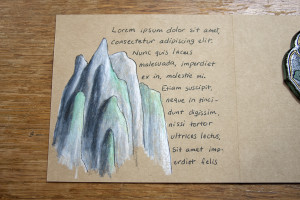 Lorem ipsum dolor sit amet,
consectetur adipiscing elit.
Nunc quis lacus
malesuada, imperdiet
ex in, molestie mi.
Etiam suscipit,
neque in tinci-
dunt digissim,
nissi tortor
ultrices lectus,
Sit amet imp-
erdiet felis